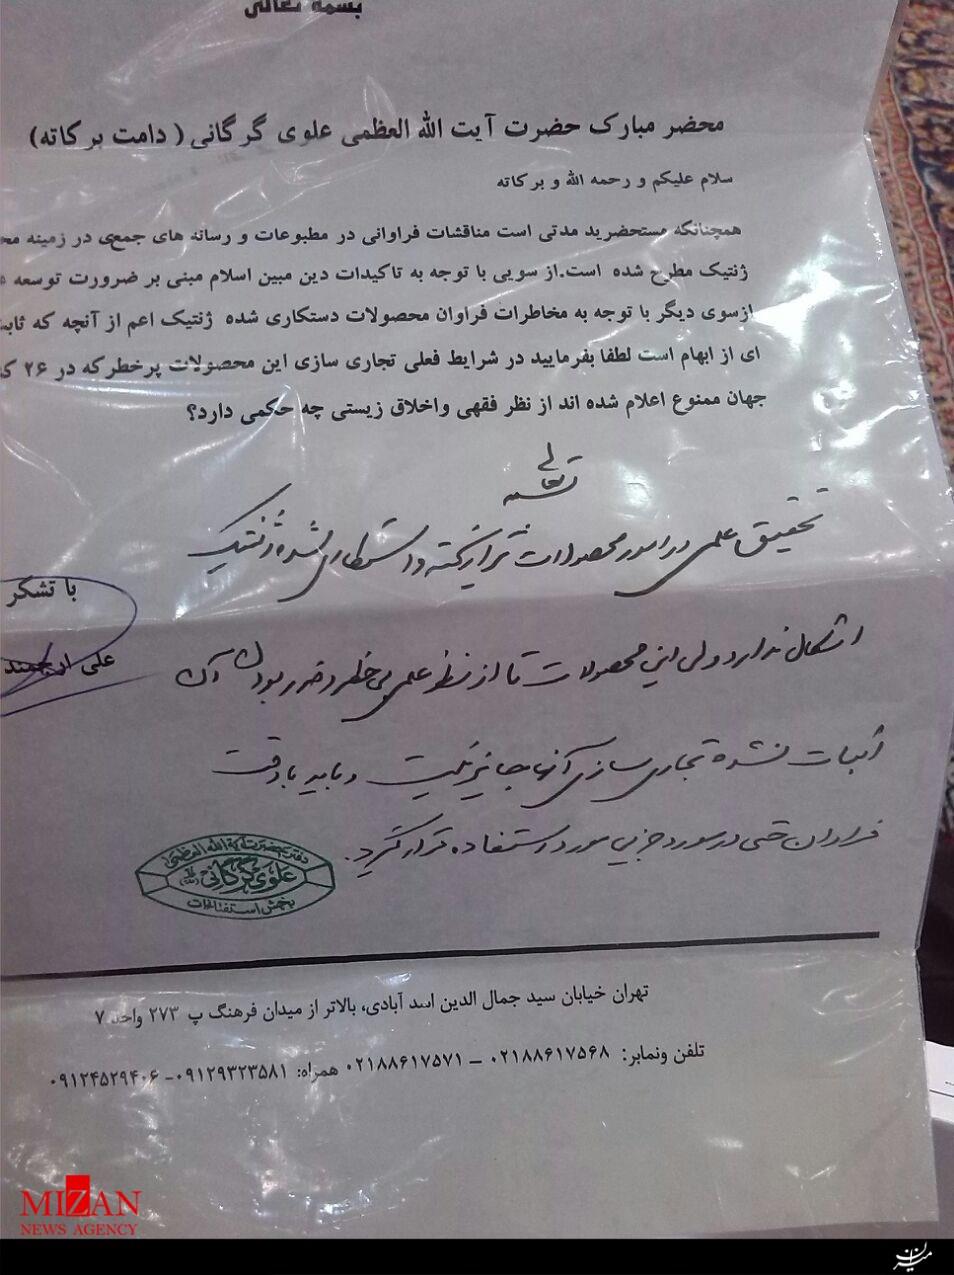 بسمه تعالی
محضر مبارک حضرت آیت الله العظمی علوی گرگانی ( دامت برکاته)
سلام علیکم و رحمه الله و برکاته
همچنانکه مستحضرید مدتی است مناقشات فراوانی در مطبوعات و رسانه های جمعی در زمینه
ژنتیک مطرح شده است.از سویی با توجه به تاکیدات دین مبین اسلام مبنی بر ضرورت توسعه
ازسوی دیگر با توجه به مخاطرات فراوان محصولات دستکاری شده ژنتیک اعم از آنچه که
ای از ابهام است لطفا بفرمایید در شرایط فعلی تجاری سازی این محصولات پرخطرکه در ۲۶
جهان ممنوع اعلام شده اند از نظر فقهی واخلاق زیستی چه حکمی دارد؟
بسمه تعالی
تحقیق علمی در امور محصولات تراریخته و دستکاری شده ژنتیک
با تشکر
اشکال ندارد ولی این محصولات تا از نظر علمی بی خطر و ضرر بودن آن
علی ارجمند
اثبات نشده تجاری سازی آنها جایز نیست و باید با دقت
فراوان حتی در مورد جزیی مورد استفاده قرار گیرد.
دفتر حضرت آیة الله العظمی
علوی گرگانی
بخش استفتائات
تهران خیابان سید جمال الدین اسد آبادی، بالاتر از میدان فرهنگ پ ۲۷۳ واحد ۷
تلفن ونمابر: ۰۲۱۸۸۶۱۷۵۶۸ – ۰۲۱۸۸۶۱۷۵۷۱ همراه: ۰۹۱۲۹۳۲۳۵۸۱- ۰۹۱۲۴۵۲۹۴۰۶
MIZAN
NEWS AGENCY
میزان